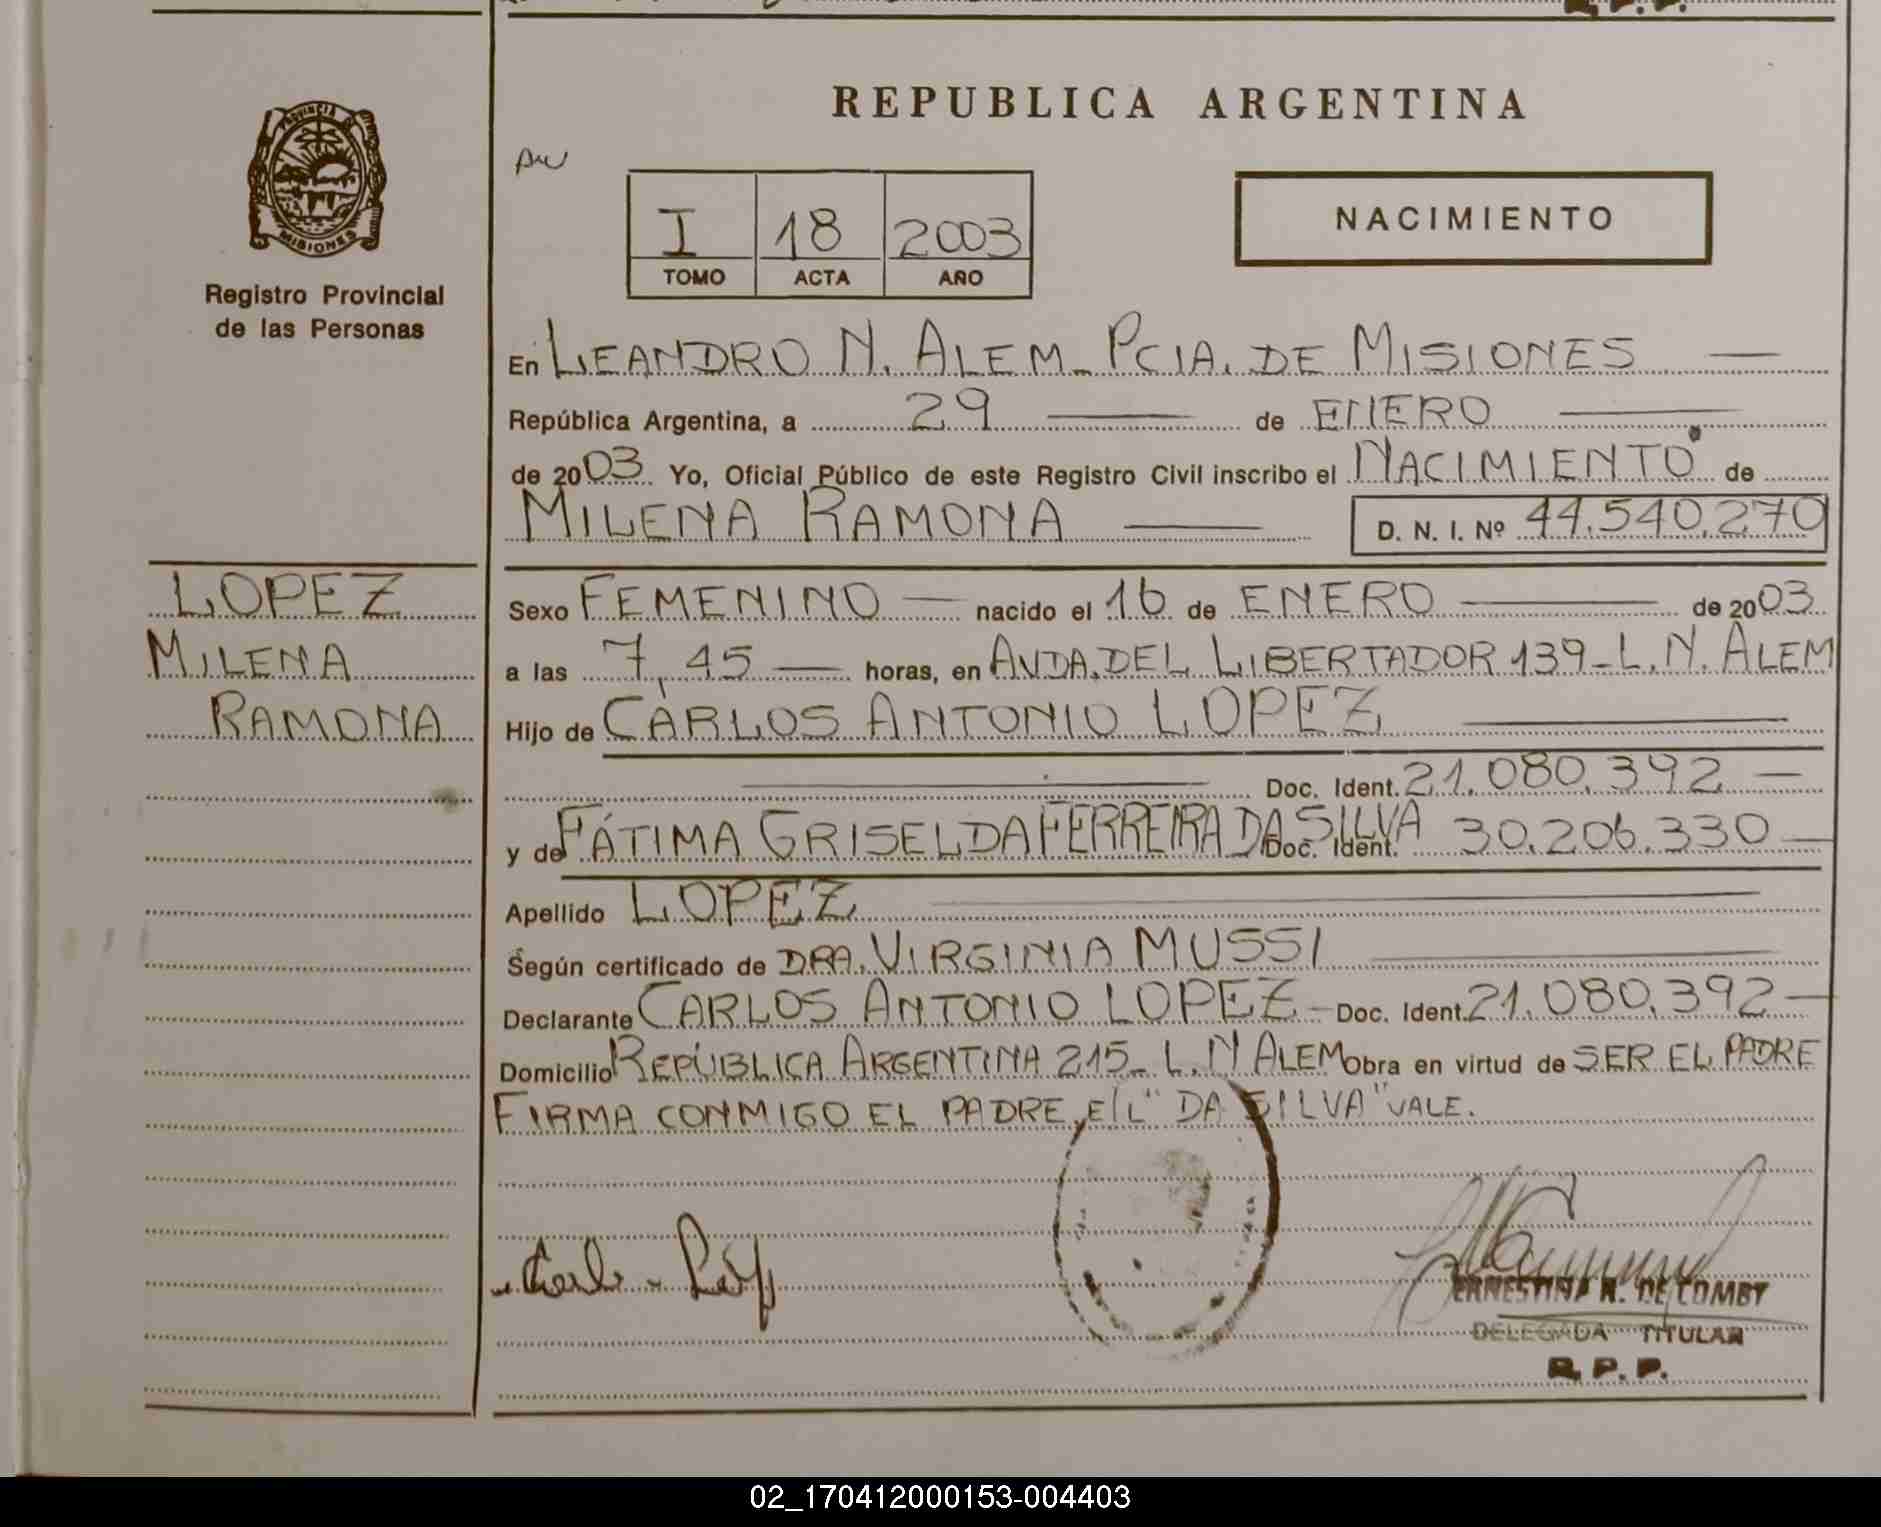 REPUBLICA ARGENTINA
PROVINCIA DE
MISIONES
Registro Provincial
de las Personas
I 18 2003
TOMO ACTA AÑO
NACIMIENTO
En LEANDRO N. ALEM_ PCIA. DE MISIONES —
República Argentina, a 29 — de ENERO —
de 2003 Yo, Oficial Público de este Registro Civil inscribo el NACIMIENTO de
MILENA RAMONA — D. N. I. Nº 44.540.270
LOPEZ
MILENA
RAMONA
Sexo FEMENINO — nacido el 16 de ENERO — de 2003
a las 7,45 — horas, en AVDA. DEL LIBERTADOR 139_ L. N. ALEM
Hijo de CARLOS ANTONIO LOPEZ —
— Doc. Ident. 21.080.392 —
y de FÁTIMA GRISELDA FERREIRA DA SILVA Doc. Ident. 30.206.330 —
Apellido LOPEZ —
Según certificado de DRA. VIRGINIA MUSSI —
Declarante CARLOS ANTONIO LOPEZ — Doc. Ident. 21.080.392 —
Domicilio REPÚBLICA ARGENTINA 215_ L. N ALEM Obra en virtud de SER EL PADRE
FIRMA CONMIGO EL PADRE, E/L "DA SILVA" VALE.
ERNESTINA N. DE COMBY
DELEGADA TITULAR
R. P. P.
02_170412000153-004403